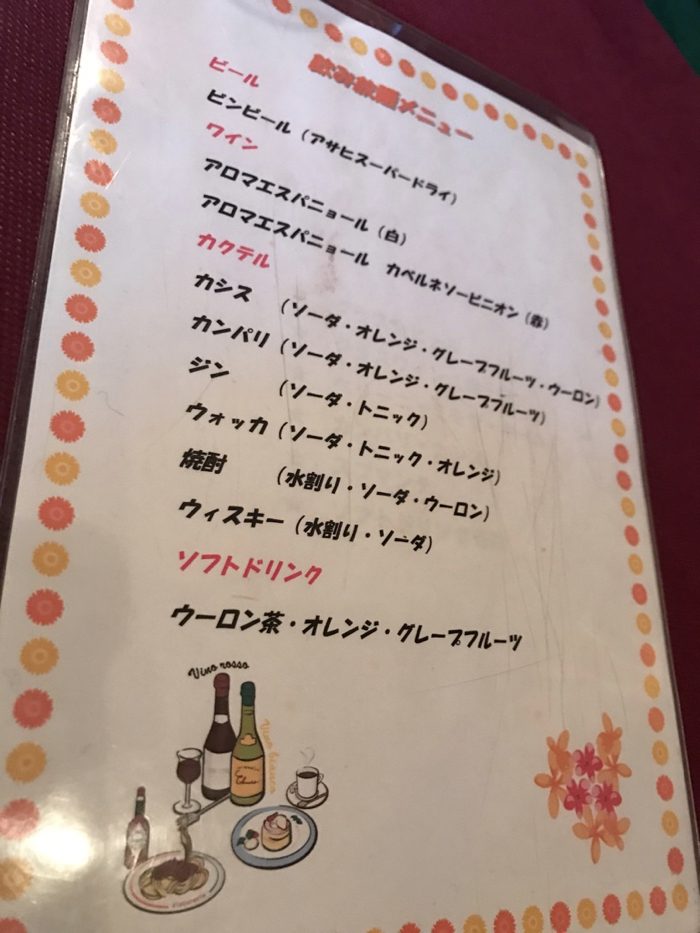 飲み放題メニュー
ビール
ビンビール（アサヒスーパードライ）
ワイン
アロマエスパニョール（白）
アロマエスパニョール　カベルネソービニオン（赤）
カクテル
カシス　（ソーダ・オレンジ・グレープフルーツ・ウーロン）
カンパリ（ソーダ・オレンジ・グレープフルーツ）
ジン　　（ソーダ・トニック）
ウォッカ（ソーダ・トニック・オレンジ）
焼酎　　（水割り・ソーダ・ウーロン）
ウィスキー（水割り・ソーダ）
ソフトドリンク
ウーロン茶・オレンジ・グレープフルーツ
Vino rosso
Vino bianco